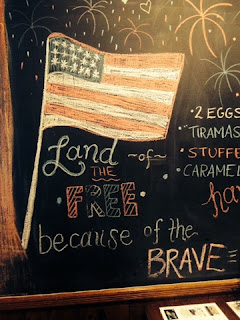 Land ~of~
THE
FREE
because of the
BRAVE
• 2 EGGS
• TIRAMAS
• STUFFE
CARAMEL
ha